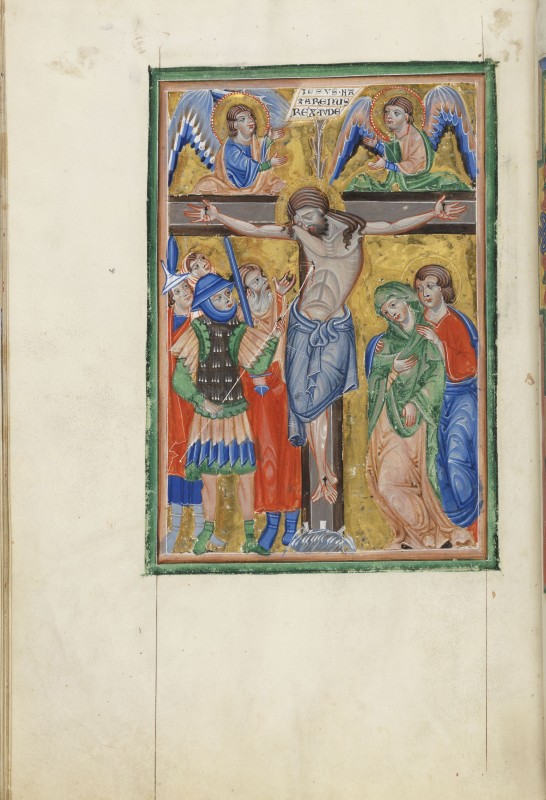 IESVS·NA
ZARENUS
REX·IVDE